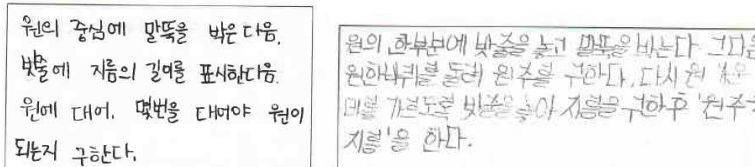 원의 중심에 말뚝을 박은 다음.
밧줄에 지름의 길이를 표시한다음.
원에 대어. 몇번을 대어야 원이
되는지 구한다.
원의 한부분에 밧줄을 놓고 말뚝을 박는다 그다음
원한바퀴를 돌려 원주를 구한다, 다시 원
가르도록 밧줄을 놓아 지름을 구한후 '원주
지름'을 한다.